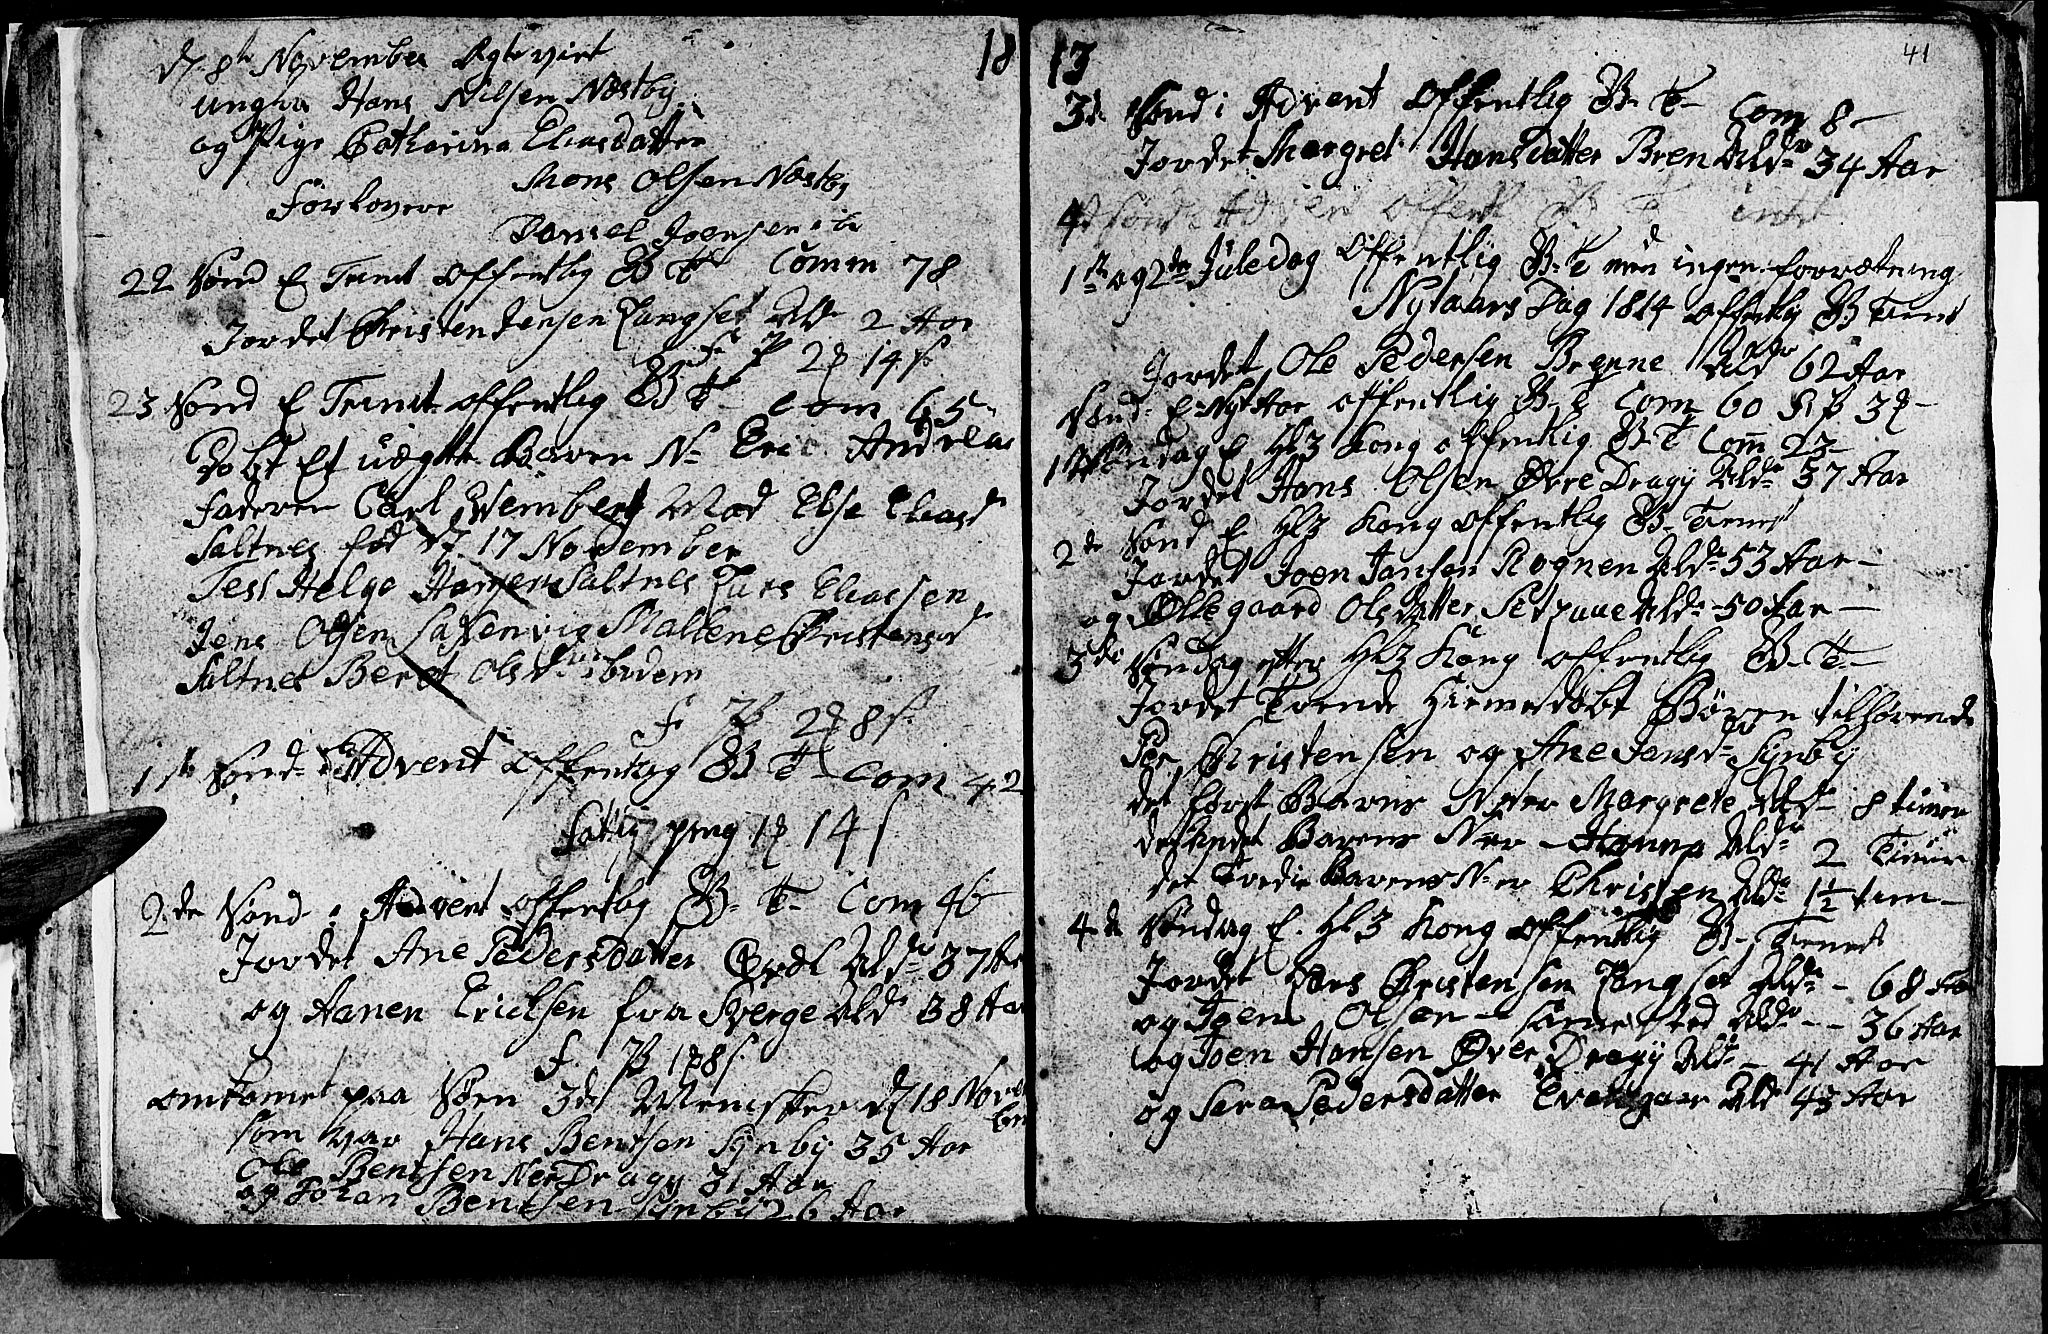 18
d. 8de November Egteviet
ungkr Hans Nilsen Næstby
og Pige Catharina Eliasdatter
Forlovere Mons Olsen Næstby
Daniel Joensen ib
22 Sønd E Trinit offentlig B T Comm 78
Jordet Christen Jensen Langset Ald 2 Aar
F P 2 14 s
23 Sønd E Trinit offentlig B T Com 65
Døbt Et uægte Barn N Eric Andreas
Faderen Carl Moed Else Eliasd
Saltnes fød d. 17 November
Test Helge Hansen Saltnes Lars Eliassen
Jens Olsen Saxenvig Maltene Christensd
Saltnes Beret Olsd ibidem
F P 2 8 s
1ste Sønd i Advent offentlig B T Com 42
fattig peng 1 14 s
2de Sønd i Advent offentlig B. T. Com 46
Jordet Ane Pedersdatter Ald 37 Aar
og Hanen Ericksen fra Sverge Ald 38 Aar
F. P 1 8 s
omkomet paa Søen 3de Mennisker d 18 Novem
ber
som var Hans Bentsen Synby 35 Aar
Ole Bentsen Ner Dragy 31 Aar
og Johan Bentsen Synby 26 Aar
13
41
3de Sønd i Advent offentlig B. T. Com 8
Jordet Margret Hansdatter Bren Ald 34 Aar
4 Sønd i Advent offentl B T
1ste og 2den Juledag offentlig B. T men ingen forrætning
Nytaars Dag 1814 offentlig B Tienest
Jordet Ole Pedersen Brenne Ald 62 Aar
Sønd. E. Nyt Aar offentlig B. T Com 60 F P 3
1 Søndag E Hl 3 Kong offentlig B. T Com 23
Jordet Hans Olsen Øvre Dragy Ald 57 Aar
2de Sønd E Hl 3 Kong offentlig B. Tienest
Jordet Joen Jansen Rognen Ald 53 Aar
og Ollegaard Olsdatter Ald 50 Aar
3die Søndag efter Hl 3 Kong offentlig B. T.
Jordet Trende Hiemedøbt Børen tilhørende
Per Christensen og Ane Jansd Synby
det først Barns N er Margrete Ald 8 timer
det Andet Barens N er Hanna Ald 2 Timer
det Tredie Barens N er Christen Ald 1½ tim
4de Søndag E. Hl 3 Kong offentlig B. Tienest
Jordet Lars Christensen Langset Ald 68 Aar
og Joen Olsen samested Ald 36 Aar
og Joen Hansen Øver Dragy Ald 41 Aar
og Sara Pedersdatter Evensgaar Ald 43 Aar